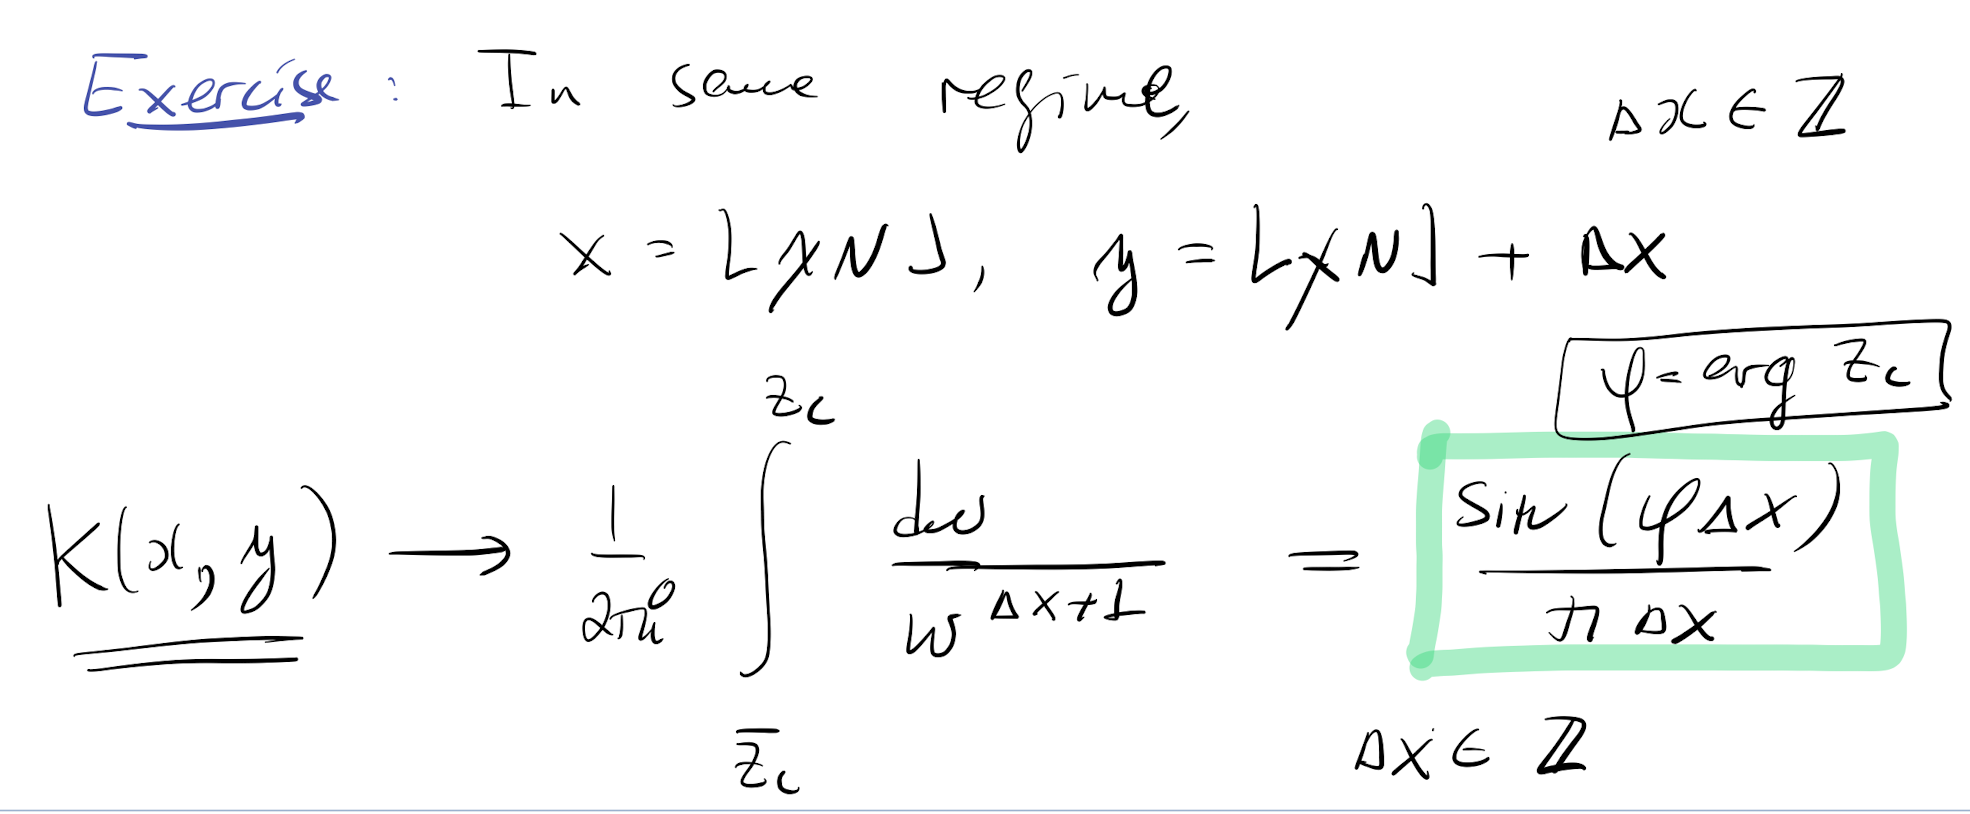 Exercise : In same regime, Δx ∈ ℤ
x = ⌊χN⌋, y = ⌊χN⌋ + Δx
φ = arg z_c
K(x, y) → 1/(2πi) ∫_{z̄_c}^{z_c} dw / w^{Δx+1} = sin(φΔx) / (π Δx)
Δx ∈ ℤ